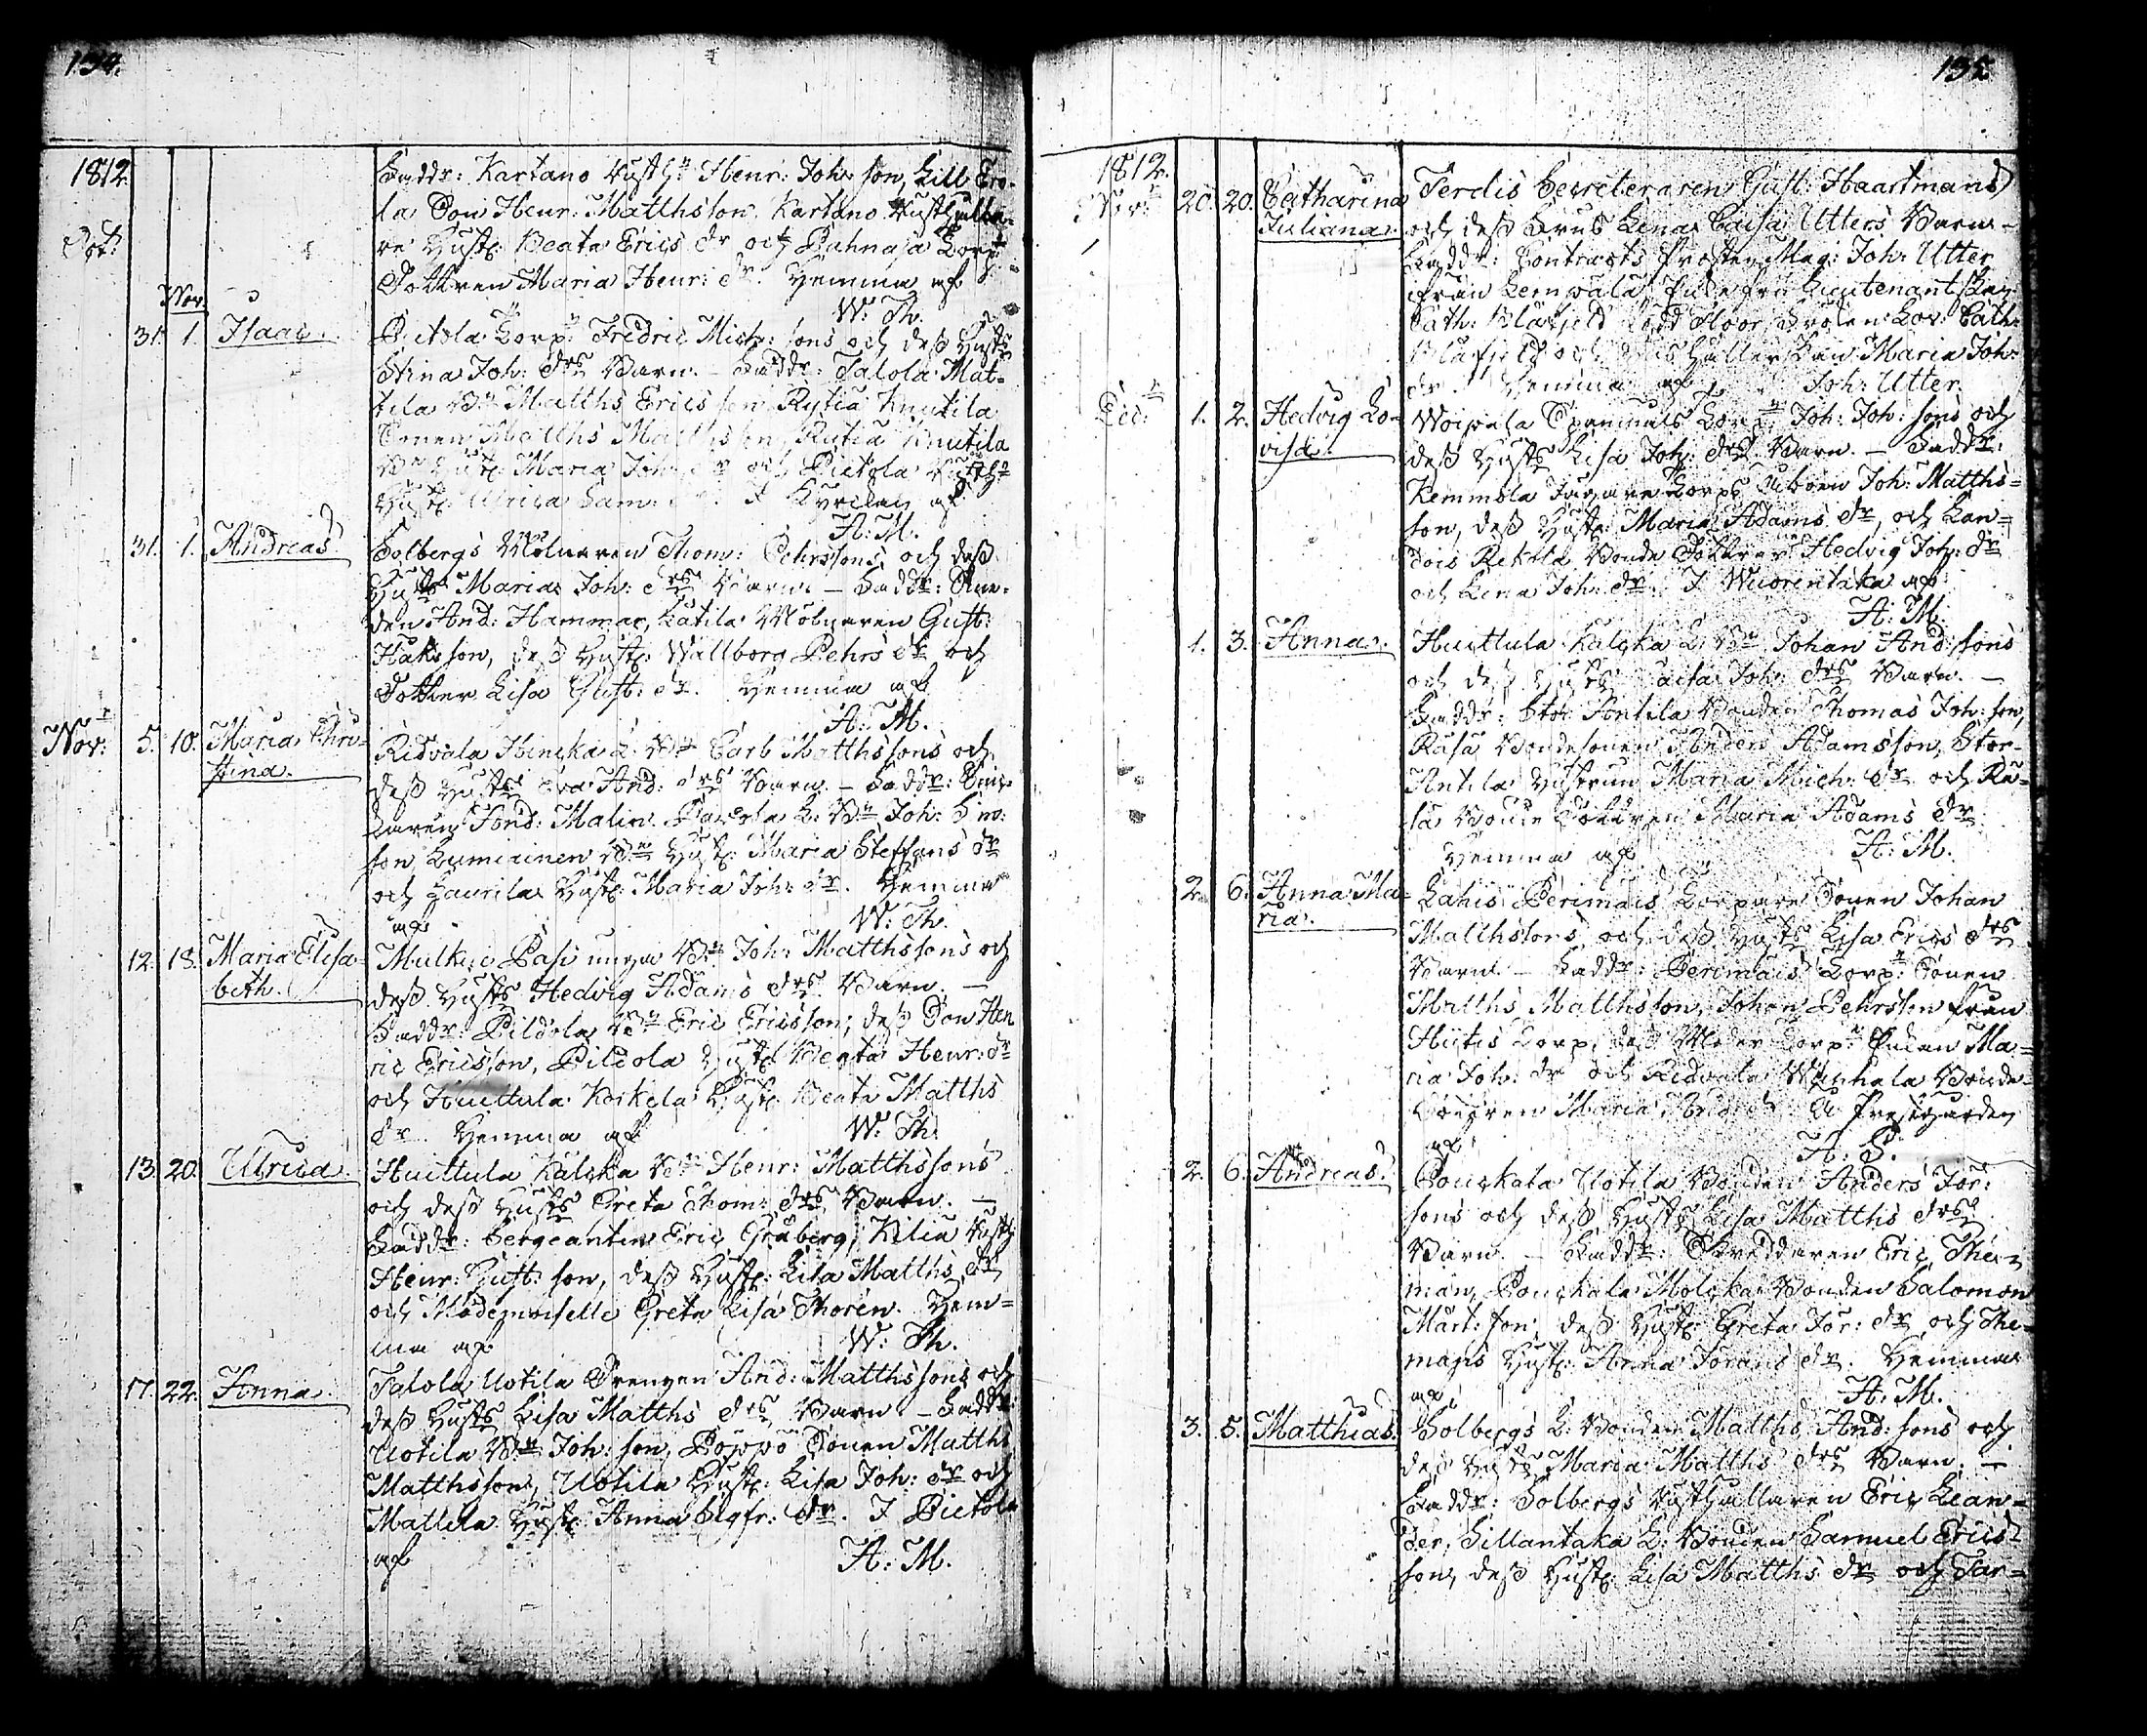 134.
1812
Oct:
Faddr: Kartano Rusth:n Henr: Joh: son, Lill Ero-
la Son Henr: Matthsson, Kartano Rusthålla-
re Hust: Beata Erics dr och Puhnaja Torp:
Dottren Maria Henr: dr. Hemma af
W: Th.
Nov:
31. 1. Isaac.
Pietola Torp: Fredric Mich: sons och dess Hust:s
Stina Joh: drs Barn. – Faddr: Talola Mat-
tila B:n Matths Ericsson, Rytiä Knutila
Sonen Matths Matthsson, Rutiä Knutila
B:n Hust: Maria Joh: dr och Pietola Rusth:n
Hust: Ulrica Sam: I Kyrckan af
A: M.
31. 1. Andreas
Solbergs Mölnaren Thom: Pehrssons och dess
Hust:s Maria Joh: drs Barn. – Faddr:
den And: Hammar, Katila Mölnaren Gust:
Haksson, dess Hust: Wallborg Pehrs dr och
Dotter Lisa Gust: dr. Hemma af
A: M.
Nov:r 5. 10. Maria Chri-
stina.
Ridvala B:n Carl Matthssons och
dess Hust:s Eva And: drs Barn. – Faddr:
Maria Steffans dr
och Laurila Hust: Maria Joh: dr. Hemma
af. W: Th.
12. 18. Maria Elisa-
beth.
Mulkuis Pasi unga B:n Joh: Matthssons och
dess Hust:s Hedvig Adams drs Barn. –
Faddr: Pildola B:n Eric Ericsson; dess Son Hen
ric Ericsson, Pildola Hust: Beata Henr: dr
och Huittula Koikela Hust: Beata Matths
dr. Hemma af W: Th.
13. 20. Ulrica.
Huittula Kälcka B:n Henr: Matthssons
och dess Hust:s Greta Thom: drs Barn. –
Faddr: Sergeanten Eric Gråberg, Kiliä Rusth:
Henr: Gust: son, dess Hust: Lisa Matths dr
och Mademoiselle Greta Lisa Thorén. Hem-
ma af W: Th.
17. 22. Anna.
Talola Uotila Drengen And: Matthssons och
dess Hust:s Lisa Matths drs Barn. – Faddr:
Uotila B:n Joh: son, Poppo Sonen Matths
Matthsson, Uotila Hust: Lisa Joh: dr och
Mattila Hust: Anna Sigfr: dr. I Pietola
af A: M.
135
1812.
Nov:r 20. 20. Catharina
Juliana.
Terdis Secreteraren Gust: Haartmans
och dess Frus Lena Caisa Utters Barn –
Faddr: Contracts Prosten Mag: Joh: Utter
ifrån Lempälä, Enkefru Lieutenantskan
Cath: Blåfjeld född Floor, Frölen Lov: Cath:
Blåfjeld och Hushållerskan Maria Joh:
dr. Hemma af Joh: Utter.
Dec:r 1. 2. Hedvig Lo-
visa.
Woipala Torp: Joh: Joh: sons och
dess Hust:s Lisa Joh: drs Barn. – Faddr:
Kemmola Jagare Torps Joh: Matths-
son, dess Hust: Maria Adams dr, och Lon-
dois Rekola Bonde Döttrar Hedvig Joh: dr
och Lena Joh: dr. I Wuorentaka af
A: M.
1. 3. Anna.
Huittula Kälcka L: B:n Johan And: sons
och dess Hust:s Caisa Joh: drs Barn. –
Faddr: Stor Antila Bonden Thomas Joh: son,
Räsä Bondesonen Anders Adamsson, Stor-
Antila Hustrun Maria Mich: dr och Rä-
sä Bonde Dottren Maria Adams dr.
Hemma af A: M.
2. 6. Anna Ma-
ria.
Lahis Perimais Torpare Sonen Johan
Matthssons och dess Hust:s Lisa Erics drs
Barn. – Faddr: Perimais Torp: Sonen
Matths Matthsson, Johan Pehrsson från
Huitis Torp, dess Moder Torp: Enkan Ma-
ria Joh: dr och Ridvala Wanhala Bonde-
Dottren Maria And: dr. På Prestgården
af. A: P.
2. 6. Andreas.
Pouckala Uotila Bonden Anders Jör:
sons och dess Hust:s Lisa Matths drs
Barn. – Faddr: Skreddaren Eric The-
man, Pouckala Molcka Bonden Salomon
Mårt: son, dess Hust: Greta Jör: dr och The-
mans Hust: Anna Jörans dr. Hemma
af A: M.
3. 5. Matthias.
Solbergs L: Bonden Matths And: sons och
dess Hust:s Maria Matths drs Barn. –
Faddr: Solbergs Rusthållaren Eric Lean-
der, Sillantaka L: Bonden Samuel Erics-
son, dess Hust: Lisa Matths dr och Tar-